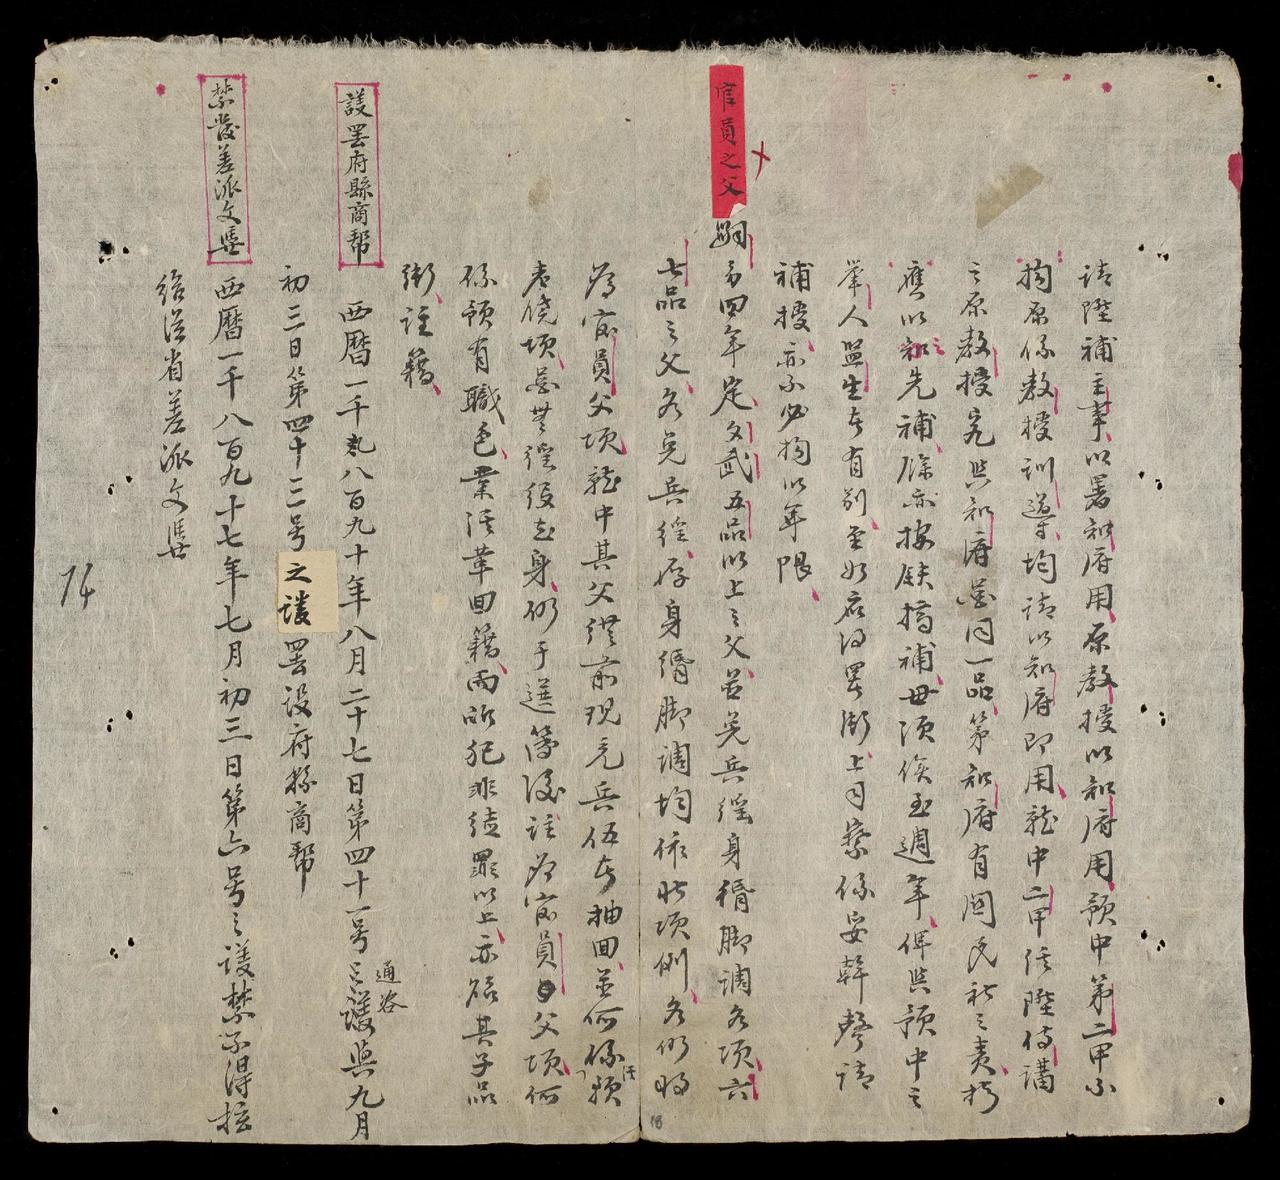 請陞補主事以署知府用原教授以知府用預中第二甲不
拘原係教授訓導均請以知府即用就中二甲經陞侍講
之原教授究與知府蓋同一品第知府有關民社之責拟
應以知先補除亦按缺搞補毋須俟至週年俾與預中之
舉人監生在有別至如在何署衙上司察係妥幹聲請
補授亦不必拘以年限
官員之父
嗣
另四年定文武五品以上之父若免兵徭身稽脚調各項六
七品之父各免兵徭存身稽脚調均依此項例各仍將
為官員父項就中其父從前現充兵伍在抽回並何係預
老饒項若無徭役已身仍于選簿後註為官員父項何
係預有職色業經革回籍而所犯非徒罪以上亦給其子品
衔註籍
設罷府縣商幇
西曆一千八百九十年八月二十七日第四十一号之議與九月
通咨
初三日第四十三号之議罷設府縣商幇
禁發差派文憑
西曆一千八百九十七年七月初三日第六号之議禁不得擅
給從省差派文憑
74
18